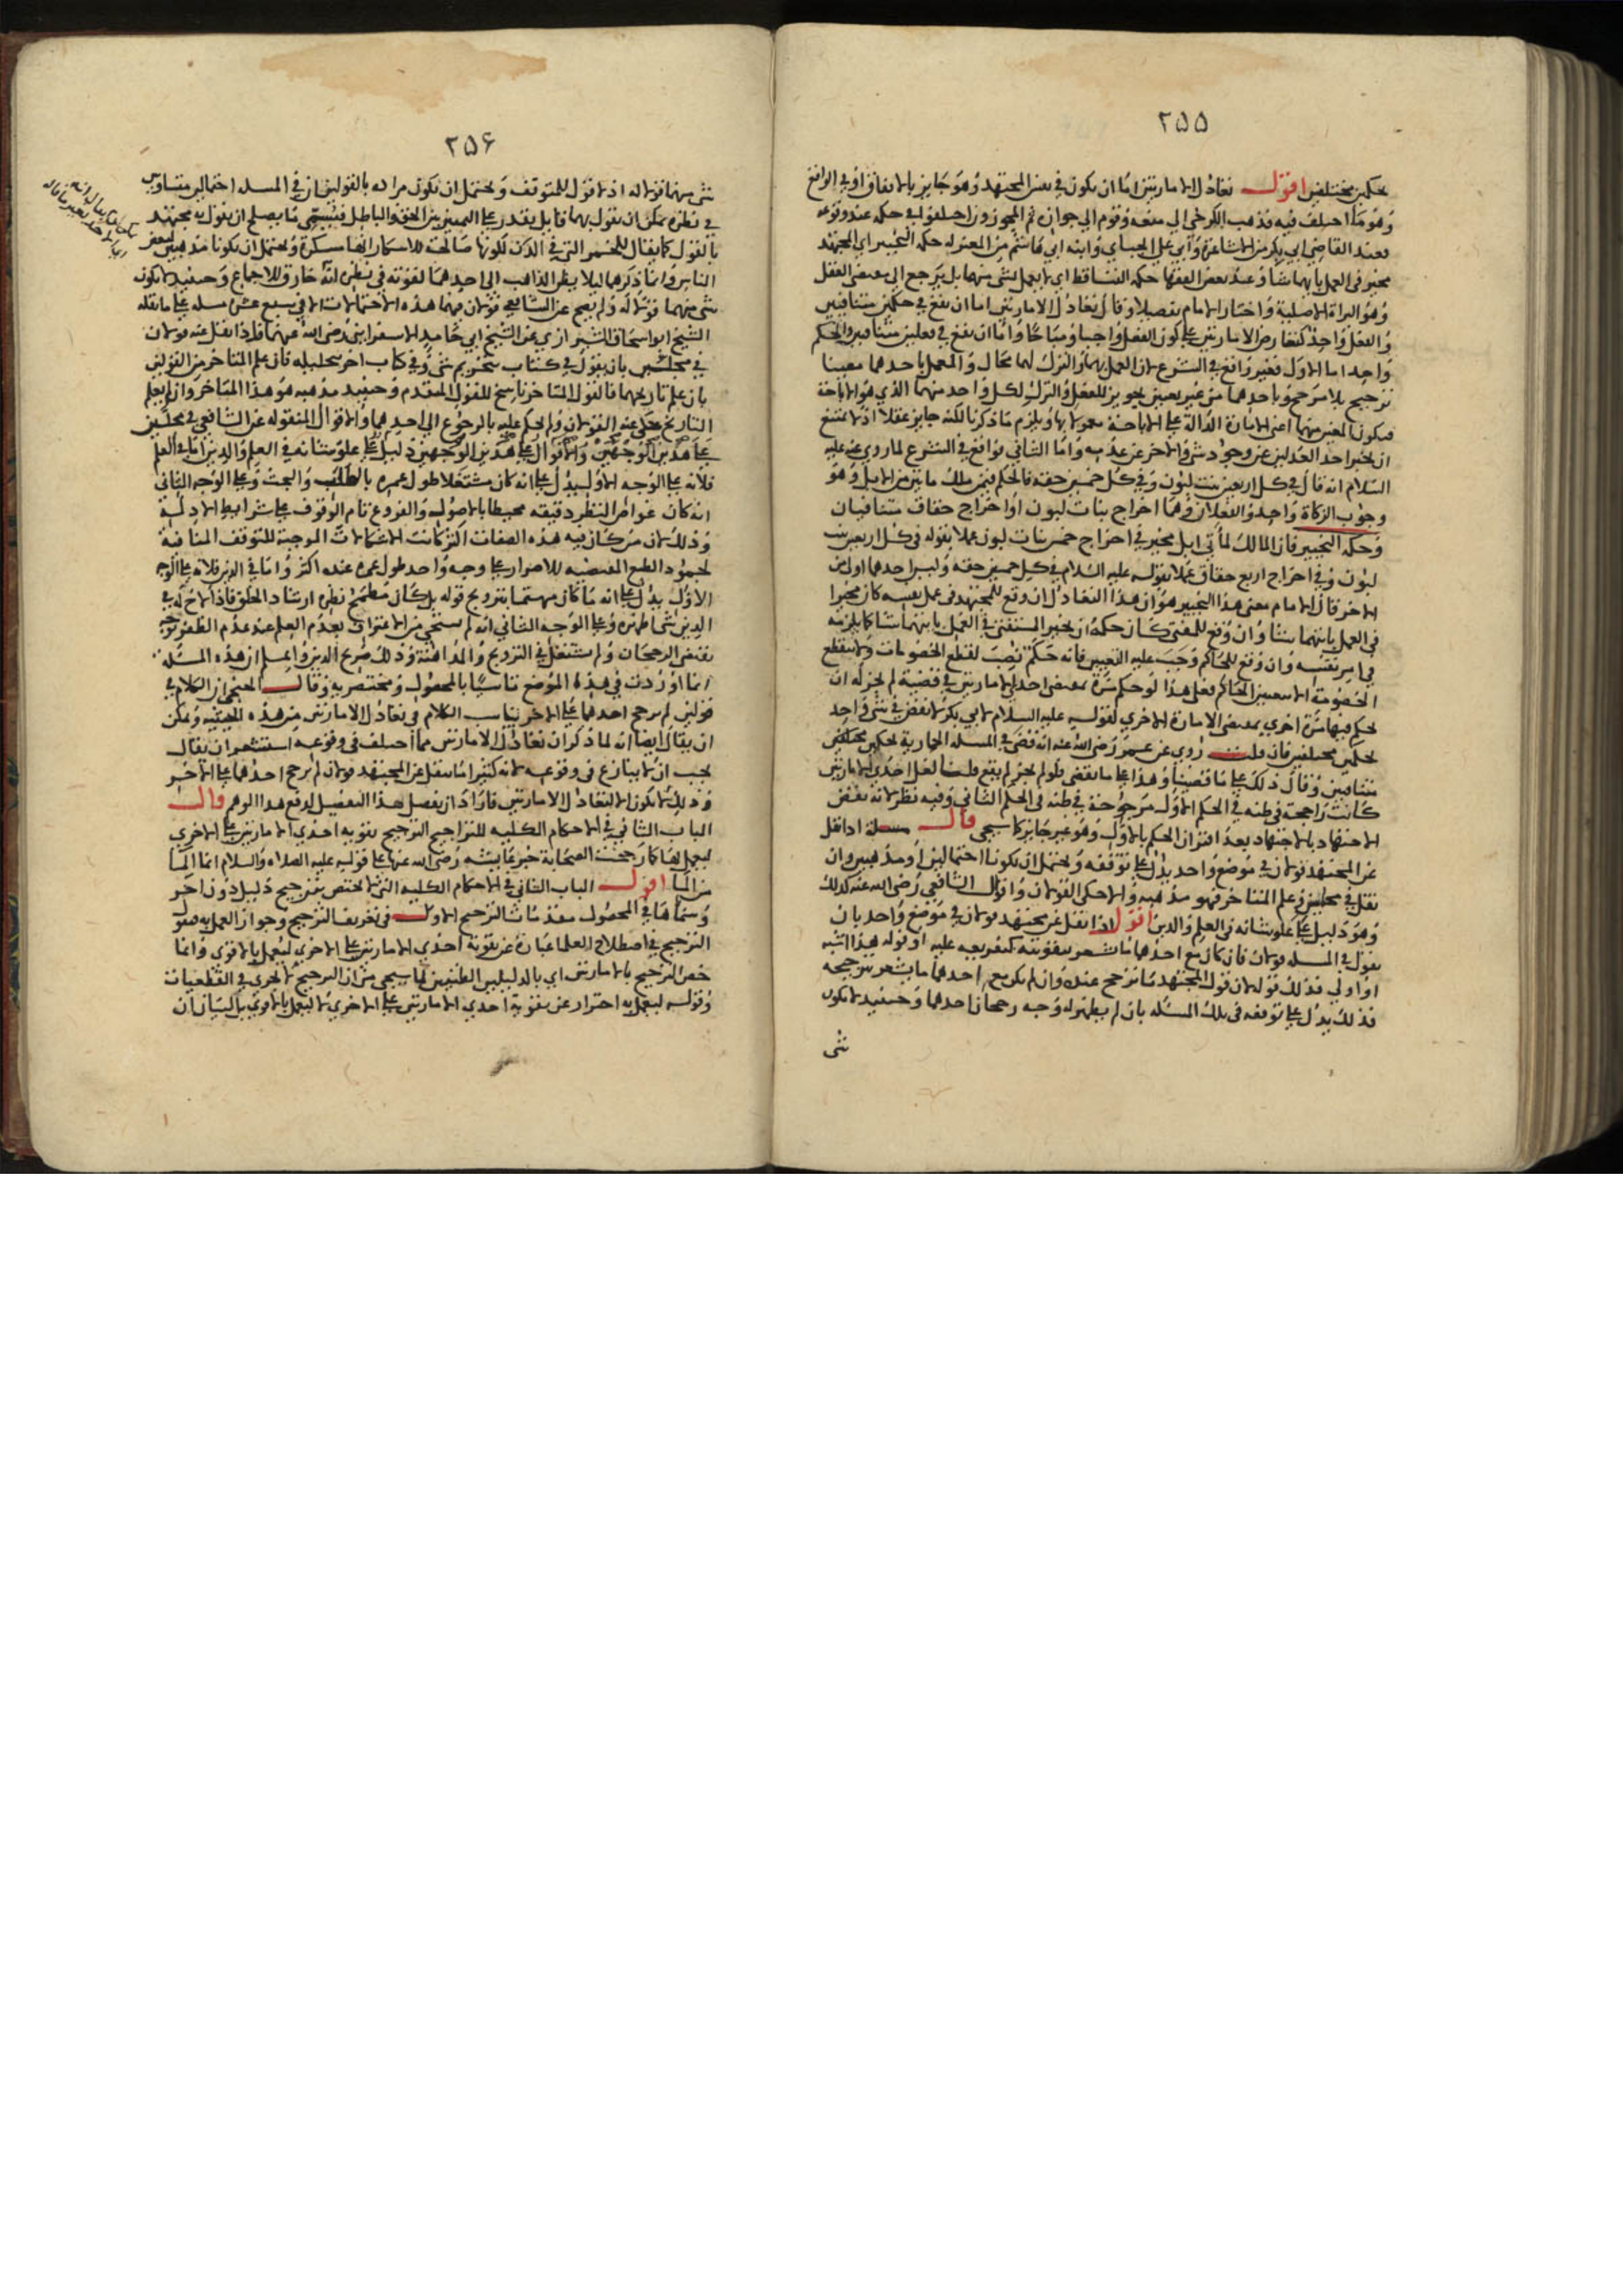 ٢٥٥
بحكمين مختلفين اقول تعادل الامارتين اما ان يكون في نفس المجتهد وهو جايز بالاتفاق او في الواقع
وهو مما اختلف فيه فذهب الكرخي الى منعه وقوم الى جوازه ثم المجوزون اختلفوا في حكمه عند وقوعه
فعند القاضي ابي بكر من الاشاعرة وابي علي الجباي وابنه ابي هاشم من المعتزله حكمه التخيير اي المجتهد
مخير في العمل بايهما شا وعند بعض الفقها حكمه التساقط اي لا يعمل بشي منهما بل يرجع الى مقتضى العقل
وهو البراة الاصلية واختار الامام تفصيلا وقال تعادل الامارتين اما ان يقع في حكمين متنافيين
والفعل واحد كتعارض الامارتين على كون الفعل واجبا ومباحا واما ان يقع في فعلين متنافيين والحكم
واحد اما الاول فغير واقع في الشرع لان العمل بهما والترك لهما محال والعمل باحدهما معينا
ترجيح بلا مرجح وباحدهما من غير تعيين تجويز للفعل والترك لكل واحد منهما الذي هو الاباحة
فيكون المعين منهما اعني الامارة الدالة على الاباحة معمولا بها ويلزم ما ذكرنا لكنه جايز عقلا اذ لا يمتنع
ان يخبر احد العدلين عن وجود شي والاخر عن عدمه واما الثاني فواقع في الشرع لما روي عنه عليه
السلام انه قال في كل اربعين بنت لبون وفي كل خمسين حقة فالحكم فيمن ملك مايتين من الابل وهو
وجوب الزكاة واحد والفعلان وهما اخراج بنات لبون او اخراج حقاق متنافيان
وحكمه التخيير فان المالك لمأتي ابل مخير في اخراج خمس بنات لبون عملا بقوله في كل اربعين بنت
لبون وفي اخراج اربع حقاق عملا بقوله عليه السلام في كل خمسين حقه وليس احدهما اولى من
الاخر قال الامام معنى هذا التخيير هو ان هذا التعادل ان وقع للمجتهد في عمل نفسه كان مخيرا
في العمل بايتهما شا وان وقع للمفتي كان حكمه ان يخير المستفتي في العمل بايتهما شا كما يلزمه
في امر نفسه وان وقع للحاكم وجب عليه التعيين فانه حكم نصب لقطع الخصومات ولا ينقطع
الخصومة الا بتعيين الحاكم فعلى هذا لو حكم مرة بمقتضى احدى الامارتين في قضية لم يجز له ان
يحكم فيها مرة اخرى بمقتضى الامارة الاخري لقوله عليه السلام لابي بكر لا تقض في شي واحد
بحكمين مختلفين فان قلت روي عن عمر رضي الله عنه انه قضى في المسله الحمارية بحكمين مختلفين
متنافيين وقال ذلك على ما قضينا وهذا على ما نقضي فلو لم يجز لم يقع قلنا لعل احدى الامارتين
كانت راجحة في ظنه في الحكم الاول مرجوحة في ظنه في الحكم الثاني وفيه نظر لانه نقض
الاجتهاد بالاجتهاد بعد اقتران الحكم بالاول وهو غير جايز كما سيجي قال مسله اذا نقل
عن المجتهد قولان في موضع واحد يدل على توقفه ويحتمل ان يكونا احتمالين او مذهبين وان
نقل في مجلسين وعلم المتاخر فهو مذهبه والا حكى القولان واقوال الشافعي رضي الله عنه كذلك
وهو دليل على علو شانه في العلم والدين اقول اذا نقل عن مجتهد قولان في موضع واحد بان
يقول في المسله قولان فان كان مع احدهما ما يشعر بتقويته كتفريعه عليه او قوله هذا اشبه
او اولى فذلك قوله لان قول المجتهد ما ترجح عنده وان لم يكن مع احدهما ما يشعر بترجيحه
فذلك يدل على توقفه في تلك المسله بان لم يظهر له وجه رجحان احدهما وحينيذ لا يكون
شي
٢٥۶
شي منهما قولا له اذ لا قول للمتوقف ويحتمل ان يكون مراده بالقولين ان في المسله احتمالين متساويين
في نظره يمكن ان يقول بهما قايل يقدر على التمييز بين الحق والباطل فيسمى ما يصلح ان يقول به مجتهد
بالقول كما يقال للخمر التي في الدن لكونها صالحة للاسكار انها مسكرة ويحتمل ان يكونا مذهبين لبعض
الناس وانما ذكرهما ليلا يظن الذاهب الى احدهما لقوته في نظره انه خارق للاجماع وحينيذ لا يكون
شي منهما قولا له ولم يصح عن الشافعي قولان فيهما هذه الاحتمالات الا في سبع عشره مسله على ما نقله
الشيخ ابو اسحاق الشيرازي عن الشيخ ابي حامد الاسفرايني رضي الله عنهما فاذا نقل عنه قولان
في مجلسين بان يقول في كتاب بتحريم شي وفي كتاب اخر بتحليله فان علم المتاخر من القولين
بان علم تاريخهما فالقول المتاخر ناسخ للقول المتقدم وحينيذ مذهبه هو هذا المتاخر وان لم يعلم
التاريخ حكي عنه القولان ولم يحكم عليه بالرجوع الى احدهما والاقوال المنقوله عن الشافعي في مجلسين
على هذين الوجهين والاقوال على هذين الوجهين دليل على علو شانه في العلم والدين اما في العلم
فلانه على الوجه الاول يدل على انه كان مشتغلا طول عمره بالطلب والبحث وعلى الوجه الثاني
انه كان غواص النظر دقيقه محيطا بالاصول والفروع تام الوقوف على شرايط الادلة
وذلك لان من كان فيه هذه الصفات اكثر كانت الاشكالات الموجبة للتوقف المنافية
لجمود الطبع المفضيه للاصرار على وجه واحد طول عمره عنده اكثر واما في الدين فلانه على الوجه
الاول يدل على انه ما كان مهتما بترويج قوله بل كان مطمح نظره ارشاد الخلق فاذا لاح له في
الدين شي اظهره وعلى الوجه الثاني انه لم يستحي من الاعتراف بعدم العلم عند عدم الظفر بوجه
يقتضي الرجحان ولم يشتغل في الترويج والمداهنة وذلك صريح الدين واعلم ان هذه المسله
انما اوردت في هذا الموضع تاسيا بالمحصول ومختصريه وقال الخنجي ان الكلام في
قولين لم يرجح احدهما على الاخر يناسب الكلام في تعادل الامارتين من هذه الحيثيه ويمكن
ان يقال ايضا انه لما ذكر ان تعادل الامارتين مما اختلف في وقوعه استشعر ان يقال
يجب ان لا ينازع في وقوعه لانه كثيرا ما نقل عن المجتهد قولان لم يرجح احدهما على الاخر
وذلك لا يكون الا لتعادل الامارتين فاراد ان يفصل هذا التفصيل لدفع هذا الوهم قال
الباب الثاني في الاحكام الكليه للتراجيح الترجيح تقوية احدى الامارتين على الاخرى
ليعمل بها كما رجحت الصحابة خبر عايشه رضي الله عنها على قوله عليه الصلاه والسلام انما الما
من الما اقول الباب الثاني في الاحكام الكليه التي لا تختص بترجيح دليل دون اخر
وسماها في المحصول مقدمات الترجيح الاول في تعريف الترجيح وجواز العمل به فنقول
الترجيح في اصطلاح العلما عبارة عن تقوية احدى الامارتين على الاخرى ليعمل بالاقوى وانما
خص الترجيح بالامارتين اي بالدليلين الظنيين لما سيجي من ان الترجيح لا يجري في القطعيات
وقوله ليعمل به احتراز عن تقوية احدى الامارتين على الاخرى لا ليعمل بالاقوى بل لبيان ان